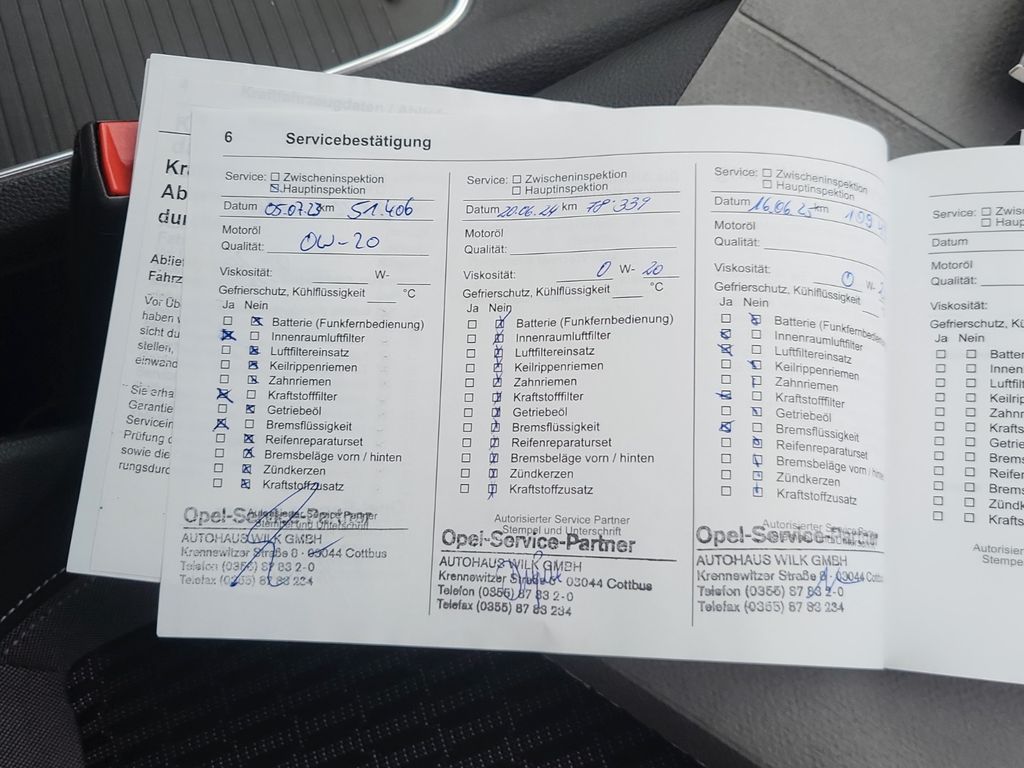 6 Servicebestätigung
Service: ☐ Zwischeninspektion
☒ Hauptinspektion
Datum 05.07.23 km 51.406
Motoröl
Qualität: 0W-20
Viskosität: W-
Gefrierschutz, Kühlflüssigkeit °C
Ja Nein
☐ ☒ Batterie (Funkfernbedienung)
☒ ☐ Innenraumluftfilter
☐ ☒ Luftfiltereinsatz
☐ ☒ Keilrippenriemen
☐ ☒ Zahnriemen
☒ ☐ Kraftstofffilter
☐ ☒ Getriebeöl
☒ ☐ Bremsflüssigkeit
☐ ☒ Reifenreparaturset
☐ ☒ Bremsbeläge vorn / hinten
☐ ☒ Zündkerzen
☐ ☒ Kraftstoffzusatz
Autorisierter Service Partner
Stempel und Unterschrift
Opel-Service-Partner
AUTOHAUS WILK GMBH
Krennewitzer Straße 8 · 03044 Cottbus
Telefon (0355) 87 83 2-0
Telefax (0355) 87 83 234
Service: ☐ Zwischeninspektion
☐ Hauptinspektion
Datum 20.06.24 km
Motoröl
Qualität:
Viskosität: 0 W- 20
Gefrierschutz, Kühlflüssigkeit °C
Ja Nein
Batterie (Funkfernbedienung)
Innenraumluftfilter
Luftfiltereinsatz
Keilrippenriemen
Zahnriemen
Kraftstofffilter
Getriebeöl
Bremsflüssigkeit
Reifenreparaturset
Bremsbeläge vorn / hinten
Zündkerzen
Kraftstoffzusatz
Autorisierter Service Partner
Stempel und Unterschrift
Opel-Service-Partner
AUTOHAUS WILK GMBH
Krennewitzer Straße 8 · 03044 Cottbus
Telefon (0355) 87 83 2-0
Telefax (0355) 87 83 234
Service: ☐ Zwischeninspektion
☐ Hauptinspektion
Datum 16.06.25 km 109
Motoröl
Qualität:
Viskosität: 0 W-
Gefrierschutz, Kühlflüssigkeit
Ja Nein
Batterie (Funkfernbedie
Innenraumluftfilter
Luftfiltereinsatz
Keilrippenriemen
Zahnriemen
Kraftstofffilter
Getriebeöl
Bremsflüssigkeit
Reifenreparaturset
Bremsbeläge vorn / hinten
Zündkerzen
Kraftstoffzusatz
Autorisierter Service
Opel-Service-Partner
AUTOHAUS WILK GMBH
Krennewitzer Straße 8 · 03044 Cottb
Telefon (0355) 87 83 2-0
Telefax (0355) 87 83 234
Service: ☐ Zwisc
☐ Haup
Datum
Motoröl
Qualität:
Viskosität:
Gefrierschutz, Kü
Ja Nein
Batter
Innen
Luftfil
Keilrip
Zahnr
Krafts
Getrie
Brems
Reifen
Brems
Zündk
Krafts
Autorisier
Stempe
Kr
Ab
dur
Ablief
Fahrz
Vor Üb
haben
sicht du
stellen,
einwand
Sie erha
Garantie
Servicein
Prüfung
sowie die
rungsdurc